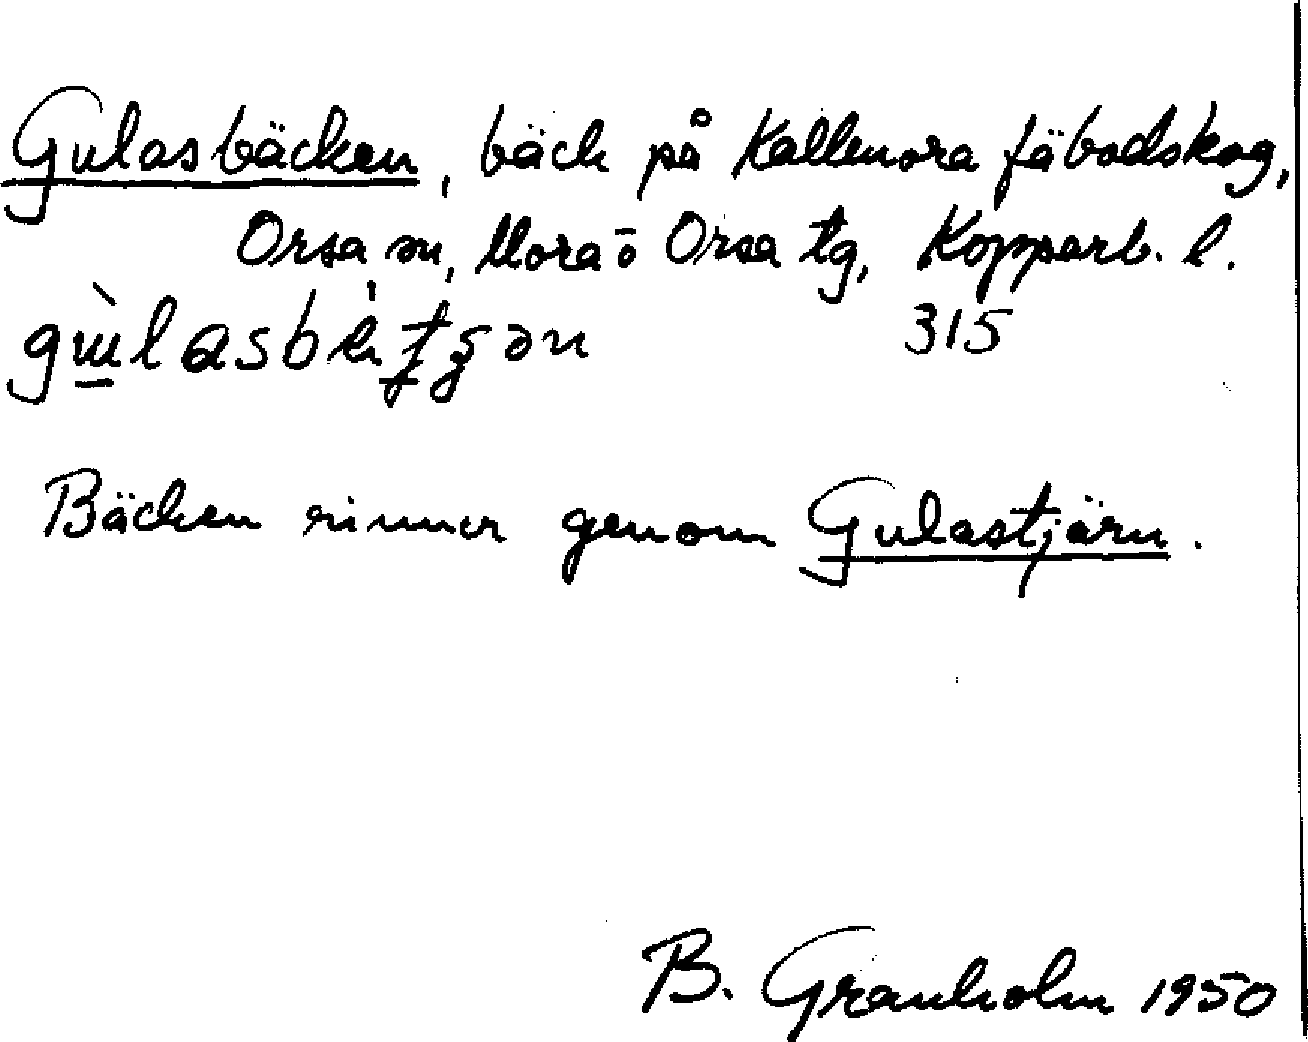 Gulasbäcken, bäck på Kallmora fäbodskog,
Orsa sn, Mora ō Orsa tg, Kopparb. l.
315
Bäcken rinner genom Gulastjärn.
B. Granholm 1950